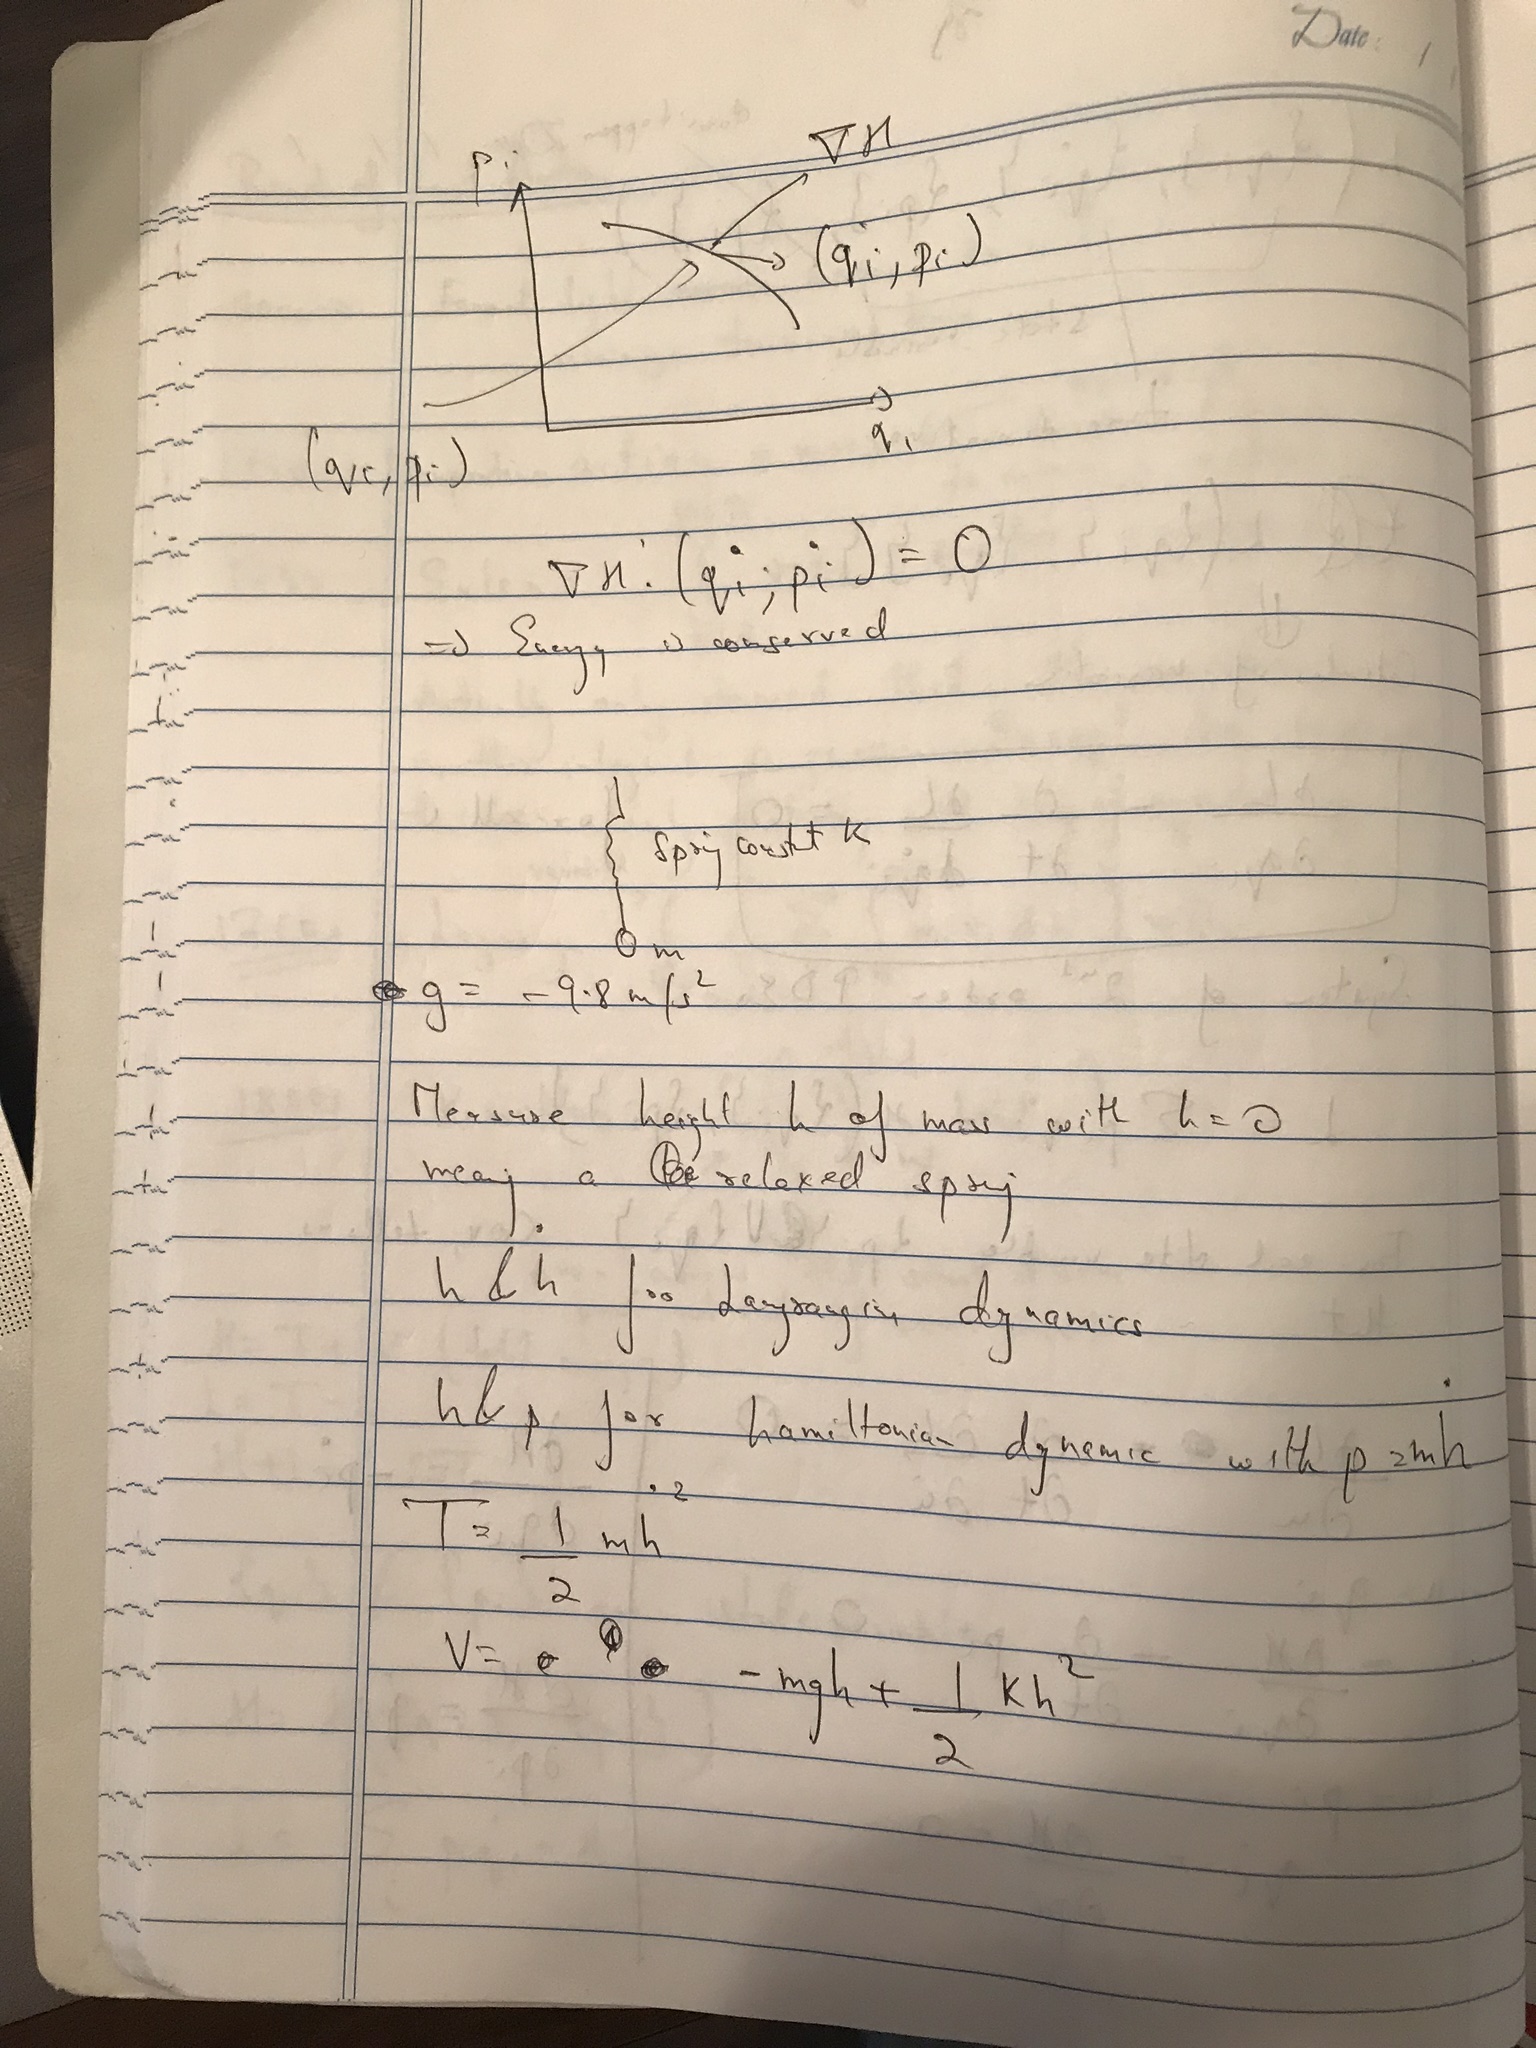 Date:
pi
∇H
(q̇i, ṗi)
qi
(qi, pi)
∇H · (q̇i, ṗi) = 0
=> Energy is conserved
spring constt K
m
g = -9.8 m/s²
Measure height h of mass with h = 0
meaning a relaxed spring
h & ḣ for Lagrangian dynamics
h & p for hamiltonian dynamic with p = mḣ
T = 1/2 mḣ²
V = -mgh + 1/2 Kh²